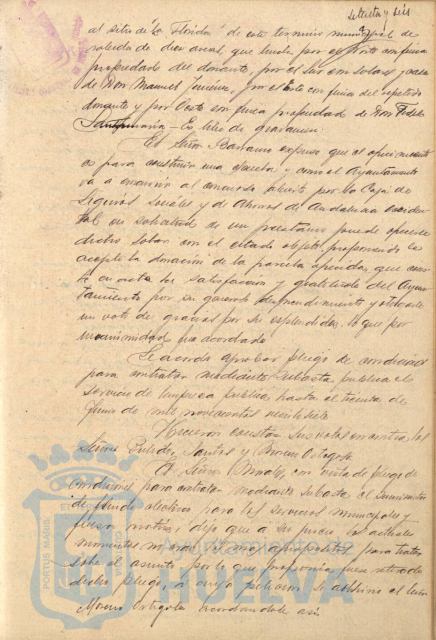 setenta y seis
al sitio de la Florida de este termino municipal de
cabida de diez areas, que linda por el Norte con finca
propiedad del donante, por el Sur con solares y casa
de Don Manuel Jimenez, por el Este con finca del repetido
donante y por Oeste con finca propiedad de Don Fidel
Santamaria. Es libre de gravamen.
El Señor Barranco expuso que el ofrecimiento
es para construir una Escuela y como el Ayuntamiento
va a enviar al concurso abierto por la Caja de
Seguros Sociales y de Ahorros de Andalucia occiden
tal en solicitud de un prestamo puede ofrecerse
dicho solar con el citado objeto, proponiendo se
acepte la donación de la parcela ofrecida, que conste
en acta la satisfaccion y gratitud del Ayun
tamiento por su generoso desprendimiento y otorgarle
un voto de gracias por su esplendidez, lo que por
unanimidad fue acordado.
Se acordo aprobar pliego de condiciones
para contratar mediante subasta publica el
servicio de limpieza publica hasta el treinta de
Junio de mil novecientos veintisiete.
Hicieron constar sus votos en contra los
Señores Santos y Moreno Ortega
El Señor con vista de pliego de
condiciones para contratar mediante subasta el suministro
de fluido electrico para los servicios municipales y
fuerza motriz, dijo que a su juicio los actuales
momentos no son el mas apropositos para tratar
sobre el asunto, por lo que proponia fuera retirado
dicho pliego, a cuya peticion se adhirio el Señor
Moreno Ortega acordandole asi
Ayuntamiento de
HUELVA
PORTUS MARIS